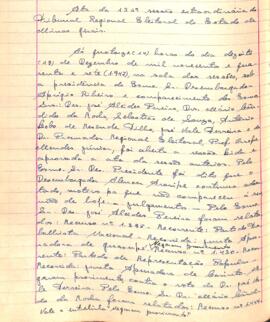 Ata da 134ª sessão extraordinária do
Tribunal Regional Eleitoral do Estado de
Minas Gerais.
Às quatorze (14) horas do dia dezoito
(18) de Dezembro de mil novecentos e qua-
renta e sete (1947) na sala das sessões, sob
a presidência do Exmo. Sr. Desembargador
Aprígio Ribeiro e comparecimento dos Exmos.
Srs. Des. José Alcides Pereira, Drs. Márcio Cân-
dido da Rocha, Sebastião de Souza, Antônio
Lobo de Resende Filho, José Vale Ferreira e do
Dr. Procurador Regional Eleitoral, Prof. Onofre
Mendes Júnior, foi aberta a sessão, lida e
aprovada a ata da sessão anterior. Pelo
Exmo. Sr. Des. Presidente foi dito que o
Desembargador Alencar Araripe continua adoen-
tado, motivo por que não compareceu à ses-
são de hoje. Julgamentos - Pelo Exmo.
Sr. Des. José Alcides Pereira foram relata-
dos: Recurso nº 1.382. Recorrente: Partido Tra-
balhista Nacional. Recorrida: Junta Apu-
radora de
Negaram provimento
Recurso nº 1.430. Recor-
rente: Partido de Representação Popular
Recorrida: Junta Apuradora de
contra o voto do Dr. José
Vale Ferreira. Pelo Exmo. Sr. Dr. Márcio Cândi-
do da Rocha foram relatados: Recurso nº
Vale a entrelinha "negaram provimento".